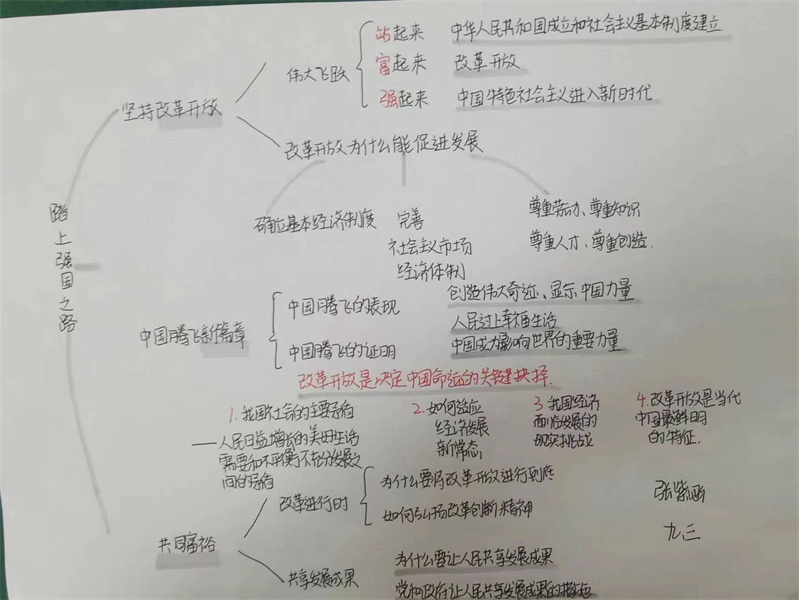 踏上强国之路
坚持改革开放
伟大飞跃
站起来 中华人民共和国成立和社会主义基本制度建立
富起来 改革开放
强起来 中国特色社会主义进入新时代
改革开放为什么能促进发展
确立基本经济制度
完善
社会主义市场
经济体制
尊重劳动、尊重知识
尊重人才、尊重创造
中国腾飞新篇章
中国腾飞的表现
创造伟大奇迹、显示中国力量
人民过上幸福生活
中国腾飞的证明
中国成为影响世界的重要力量
改革开放是决定中国命运的关键抉择
1. 我国社会的主要矛盾
——人民日益增长的美好生活
需要和不平衡不充分发展之
间的矛盾
2. 如何适应
经济发展
新常态
3 我国经济
面临发展的
现实挑战
4. 改革开放是当代
中国最鲜明
的特征.
共同富裕
改革进行时
为什么要将改革开放进行到底
如何弘扬改革创新精神
共享发展成果
为什么要让人民共享发展成果
党和政府让人民共享发展成果的措施
张紫涵
九三